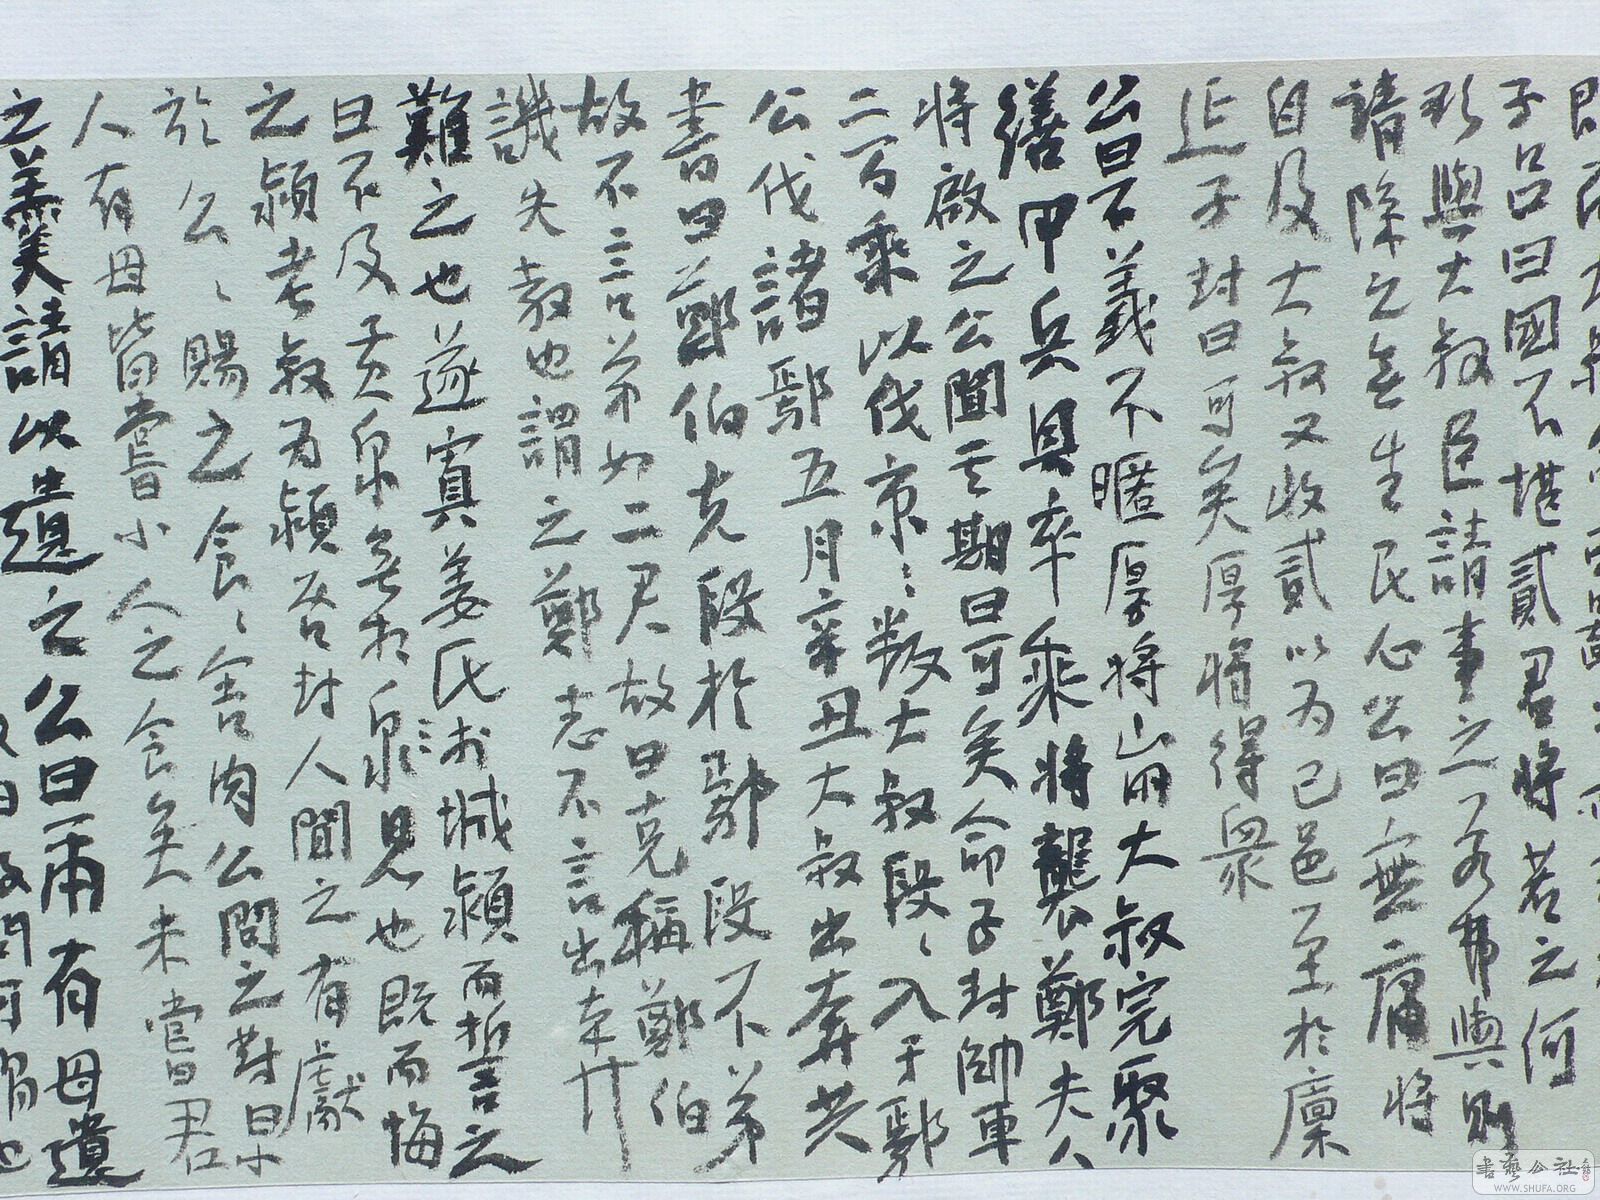 子吕曰國不堪貳君將若之何
欲與大叔臣請事之若弗與則
請除之無生民心公曰無庸將
自及大叔又收貳以为己邑至於廩
延子封曰可矣厚將得衆
公曰不義不暱厚將崩大叔完聚
繕甲兵具卒乘將襲鄭夫人
將啟之公聞其期曰可矣命子封帥車
二百乘以伐京京叛大叔段段入于鄢
公伐諸鄢五月辛丑大叔出奔共
書曰鄭伯克段於鄢段不弟
故不言弟如二君故曰克稱鄭伯
譏失教也謂之鄭志不言出奔
難之也遂寘姜氏於城潁而誓之
曰不及黃泉無相見也既而悔
之潁考叔为潁谷封人聞之有獻
於公公賜之食食舍肉公問之對曰小
人有母皆嘗小人之食矣未嘗君
之羹請以遺之公曰爾有母遺
書藝公社
WWW.SHUFA.ORG